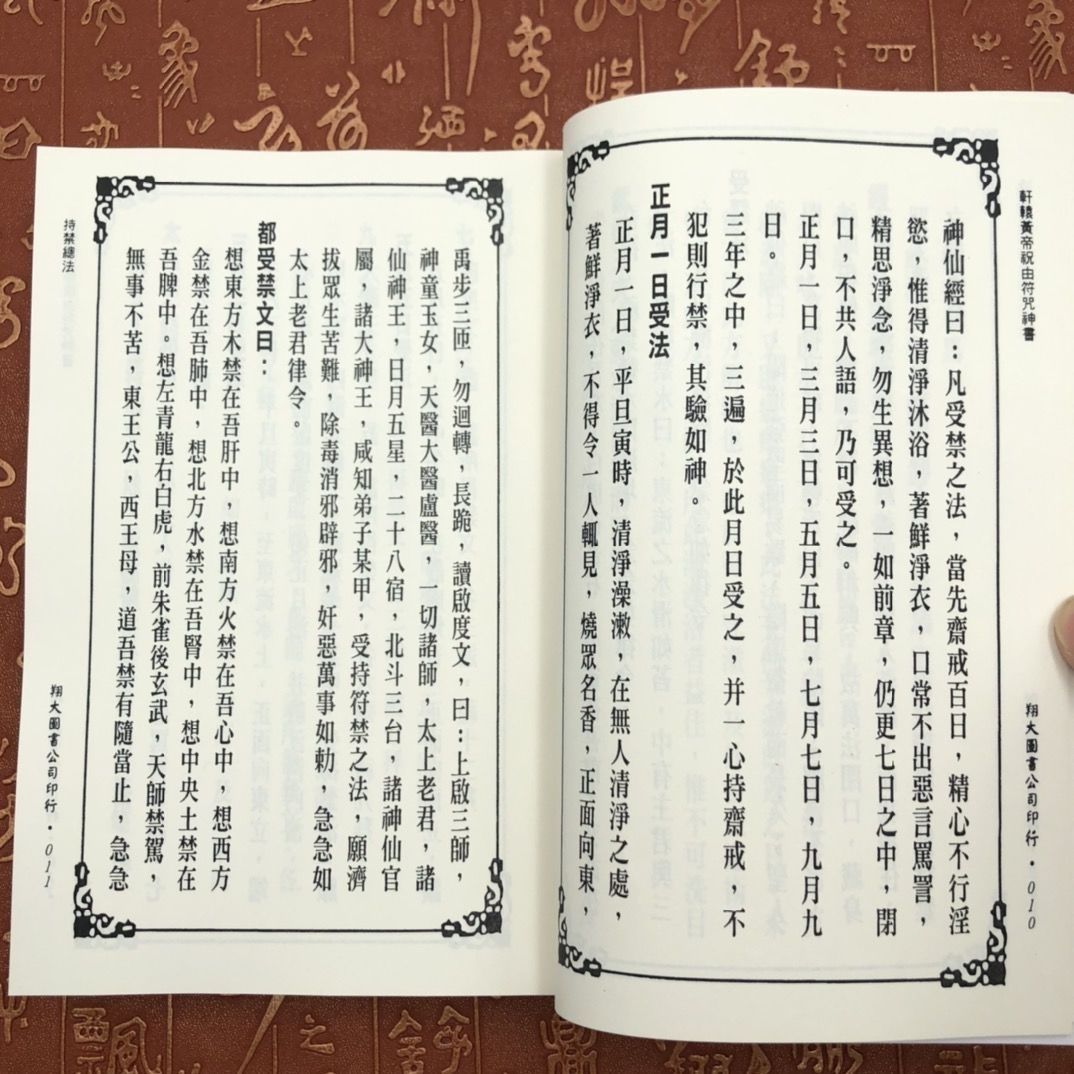 軒轅黃帝祝由符咒神書
神仙經曰：凡受禁之法，當先齋戒百日，精心不行淫
慾，惟得清淨沐浴，著鮮淨衣，口常不出惡言罵詈，
精思淨念，勿生異想，一如前章，仍更七日之中，閉
口，不共人語，乃可受之。
正月一日，三月三日，五月五日，七月七日，九月九
日。
三年之中，三遍，於此月日受之，并一心持齋戒，不
犯則行禁，其驗如神。
正月一日受法
正月一日，平旦寅時，清淨澡漱，在無人清淨之處，
著鮮淨衣，不得令一人輒見，燒眾名香，正面向東，
翔大圖書公司印行・010
禹步三匝，勿迴轉，長跪，讀啟度文，曰：上啟三師，
神童玉女，天醫大醫盧醫，一切諸師，太上老君，諸
仙神王，日月五星，二十八宿，北斗三台，諸神仙官
屬，諸大神王，咸知弟子某甲，受持符禁之法，願濟
拔眾生苦難，除毒消邪辟邪，奸惡萬事如勅，急急如
太上老君律令。
都受禁文曰：
想東方木禁在吾肝中，想南方火禁在吾心中，想西方
金禁在吾肺中，想北方水禁在吾腎中，想中央土禁在
吾脾中。想左青龍右白虎，前朱雀後玄武，天師禁駕，
無事不苦，東王公，西王母，道吾禁有隨當止，急急
持禁總法
翔大圖書公司印行・011